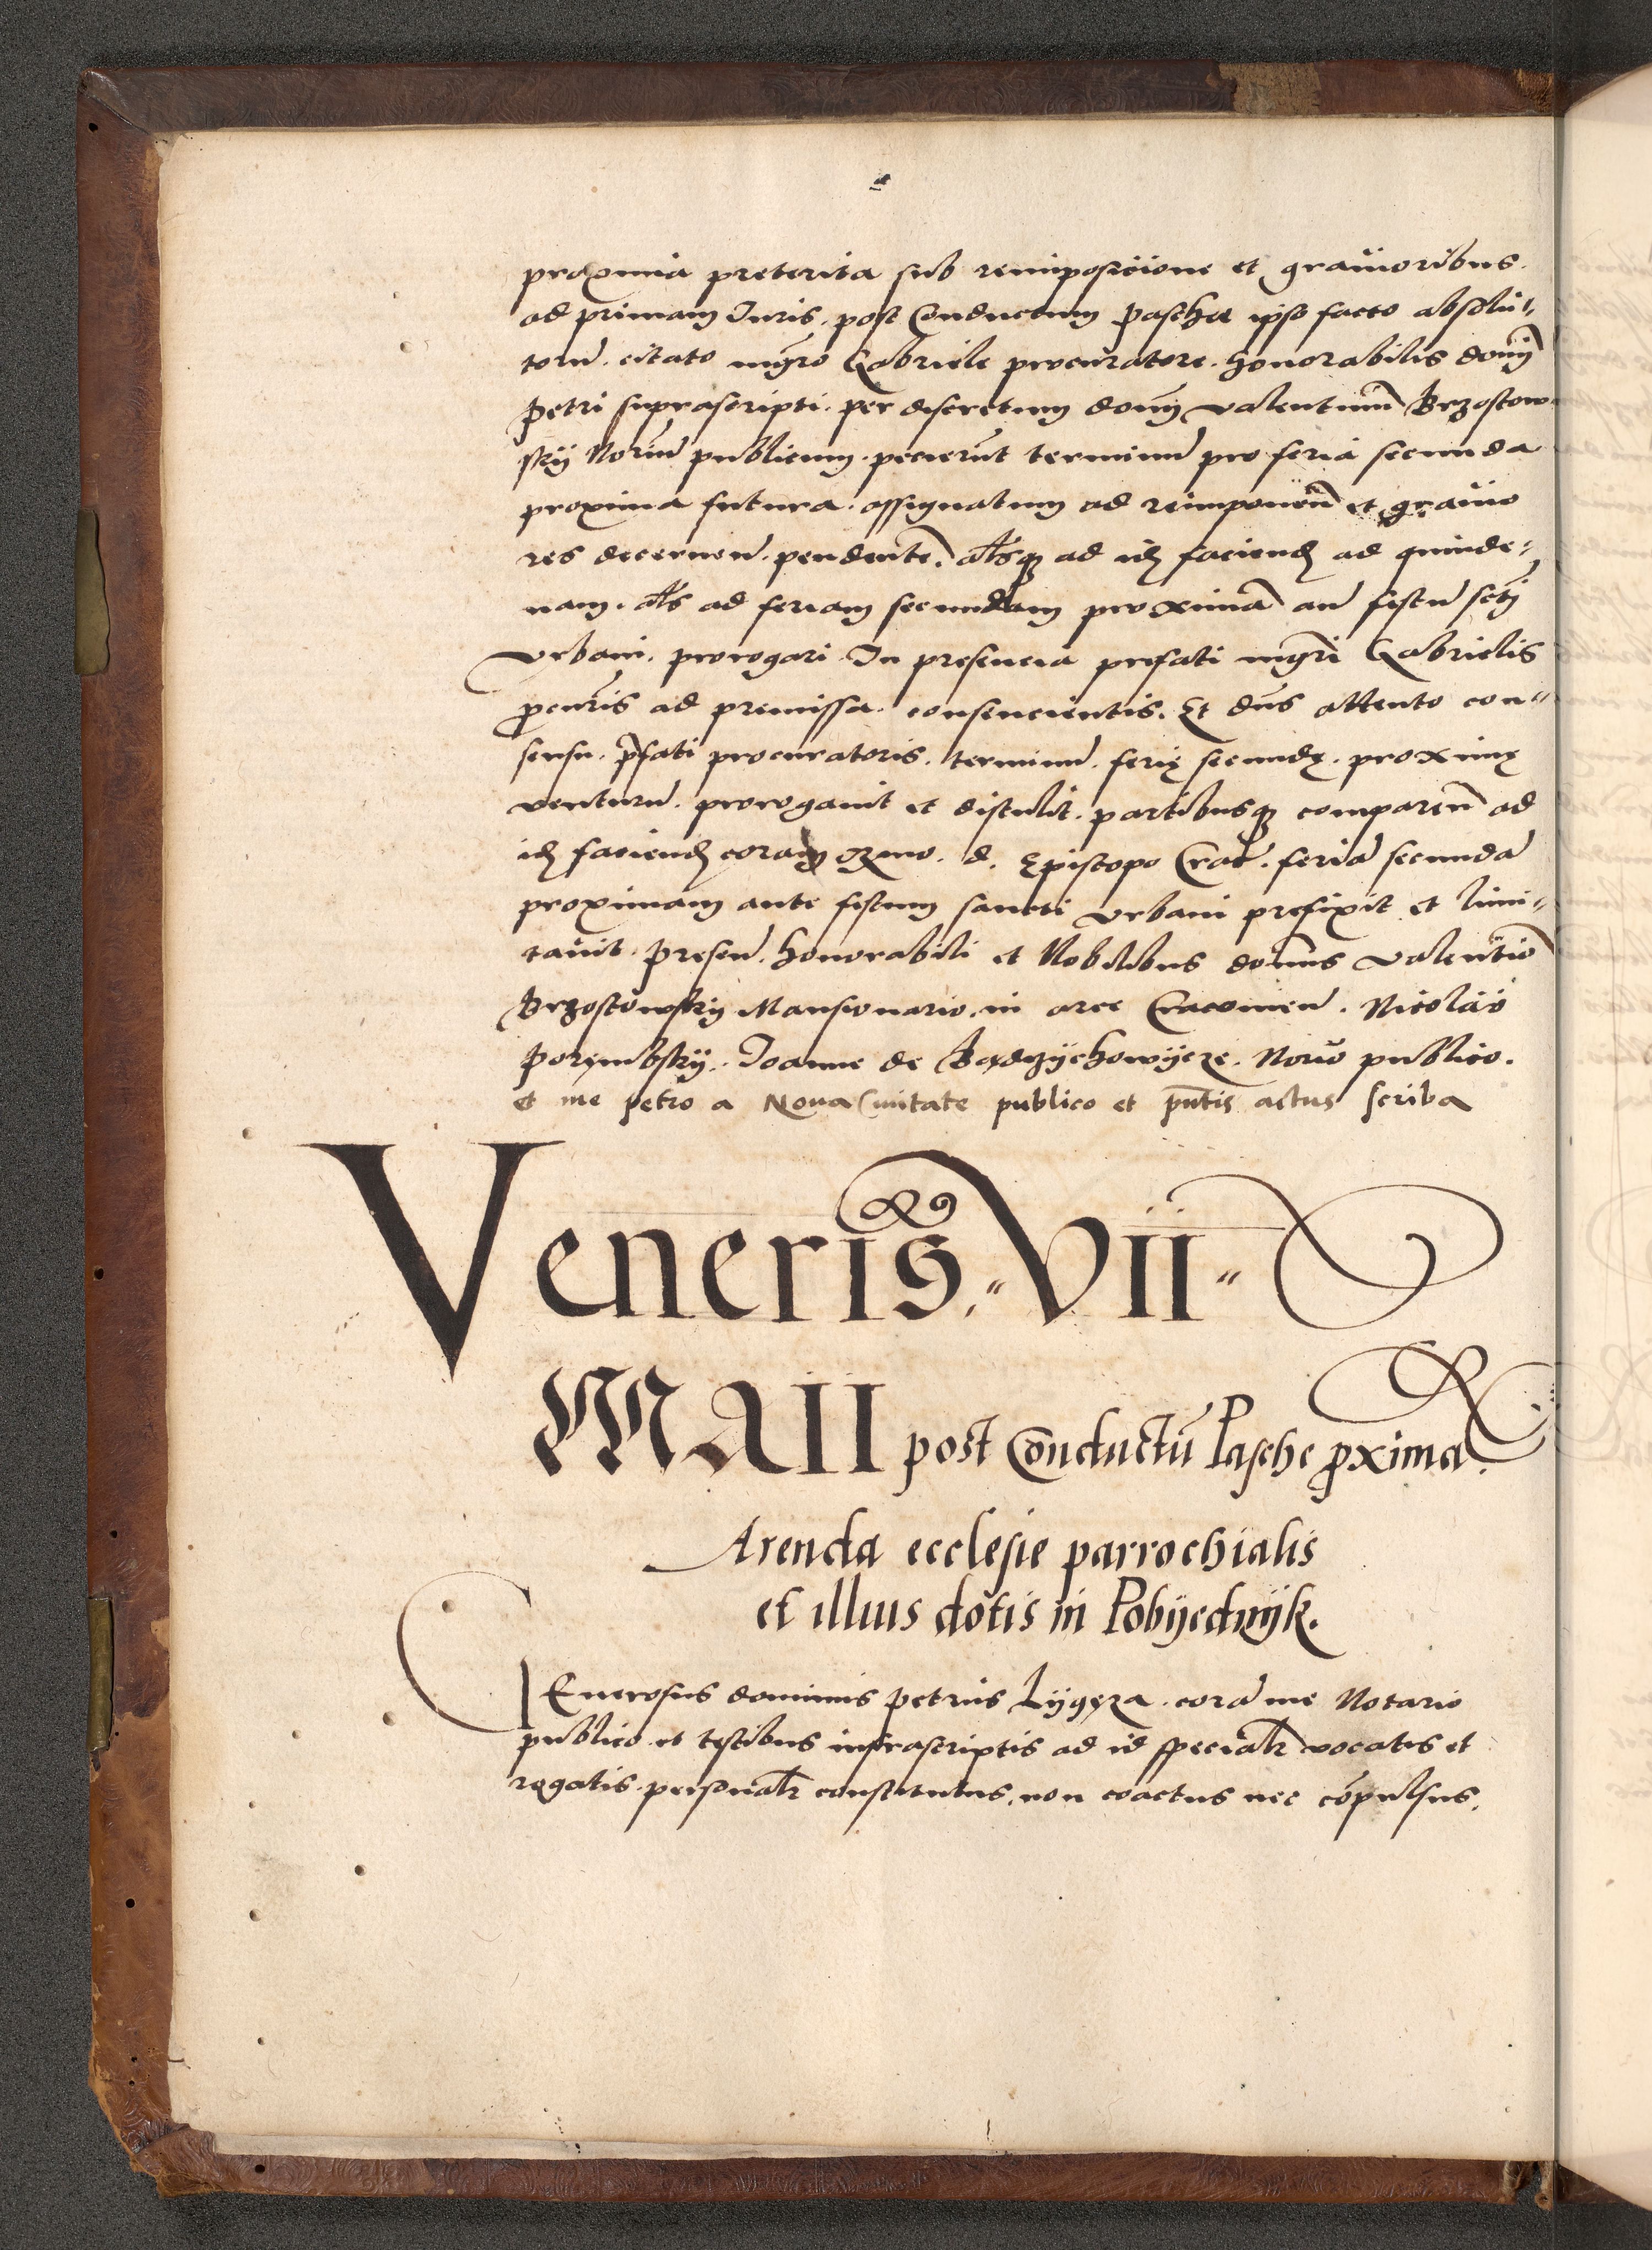 proxima preterita sub reimposicione et grauioribus.
ad primam Iuris. post Conductum Paschae ipso facto absolu=
torũ. citato mgr̃o Gabriele procuratore. honorabilis dom̃
Petri suprascripti. per discretum dom̃ Valentinũ Brzostow
sky Norũ publicum. pecierũt terminũ pro feria secunda
proxima futura. assignatum ad reimponeñ et grauio
res decerneñ. pendente. al̃sqꝫ ad idꝫ faciendꝫ ad quinde=
nam. al̃s ad feriam secundam proximã an̄ festũ scti
Vrbani. prorogari. In presencia prefati mgr̃i Gabrielis
ꝓcur̃is ad premissa. consencientis. Et dñs attento con=
sensu. p̃fati procuratoris. terminũ. ferię secundę. proximę
venturũ. prorogauit et distulit. partibusqꝫ compareñ ad
idꝫ faciendꝫ coram Rmo. d. Episcopo Crac̃. feriã secundã
proximam ante festum sancti Vrbani prefixit et limi=
tauit. Preseñ. honorabili et Nobilibus domĩs Valentĩo
Brzostowsky Mansionario. in arce Cracouieñ. Nicolao
Porembsky. Joanne de Bądzychowycze. Norĩo publico.
et me petro a Noua Ciuitate publico et pñtis actus scriba
Veneris. VII
MAII post Conductũ Pasche ꝓxima.
Arenda ecclesie parrochialis
et illius dotis in Pobyednyk.
GEnerosus dominus Petrus Lygęza. corã me Notario
publico et testibus infrascriptis ad id specialr̃ vocatis et
rogatis. personalr̃ constitutus. non coactus nec cõpulsus.